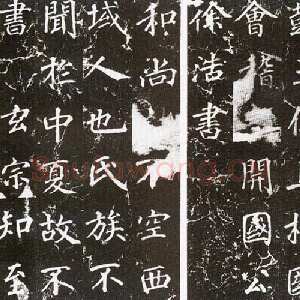 會稽開國公
徐浩書
和尚不空西
域人也氏族不
聞於中夏故不
書玄宗知至